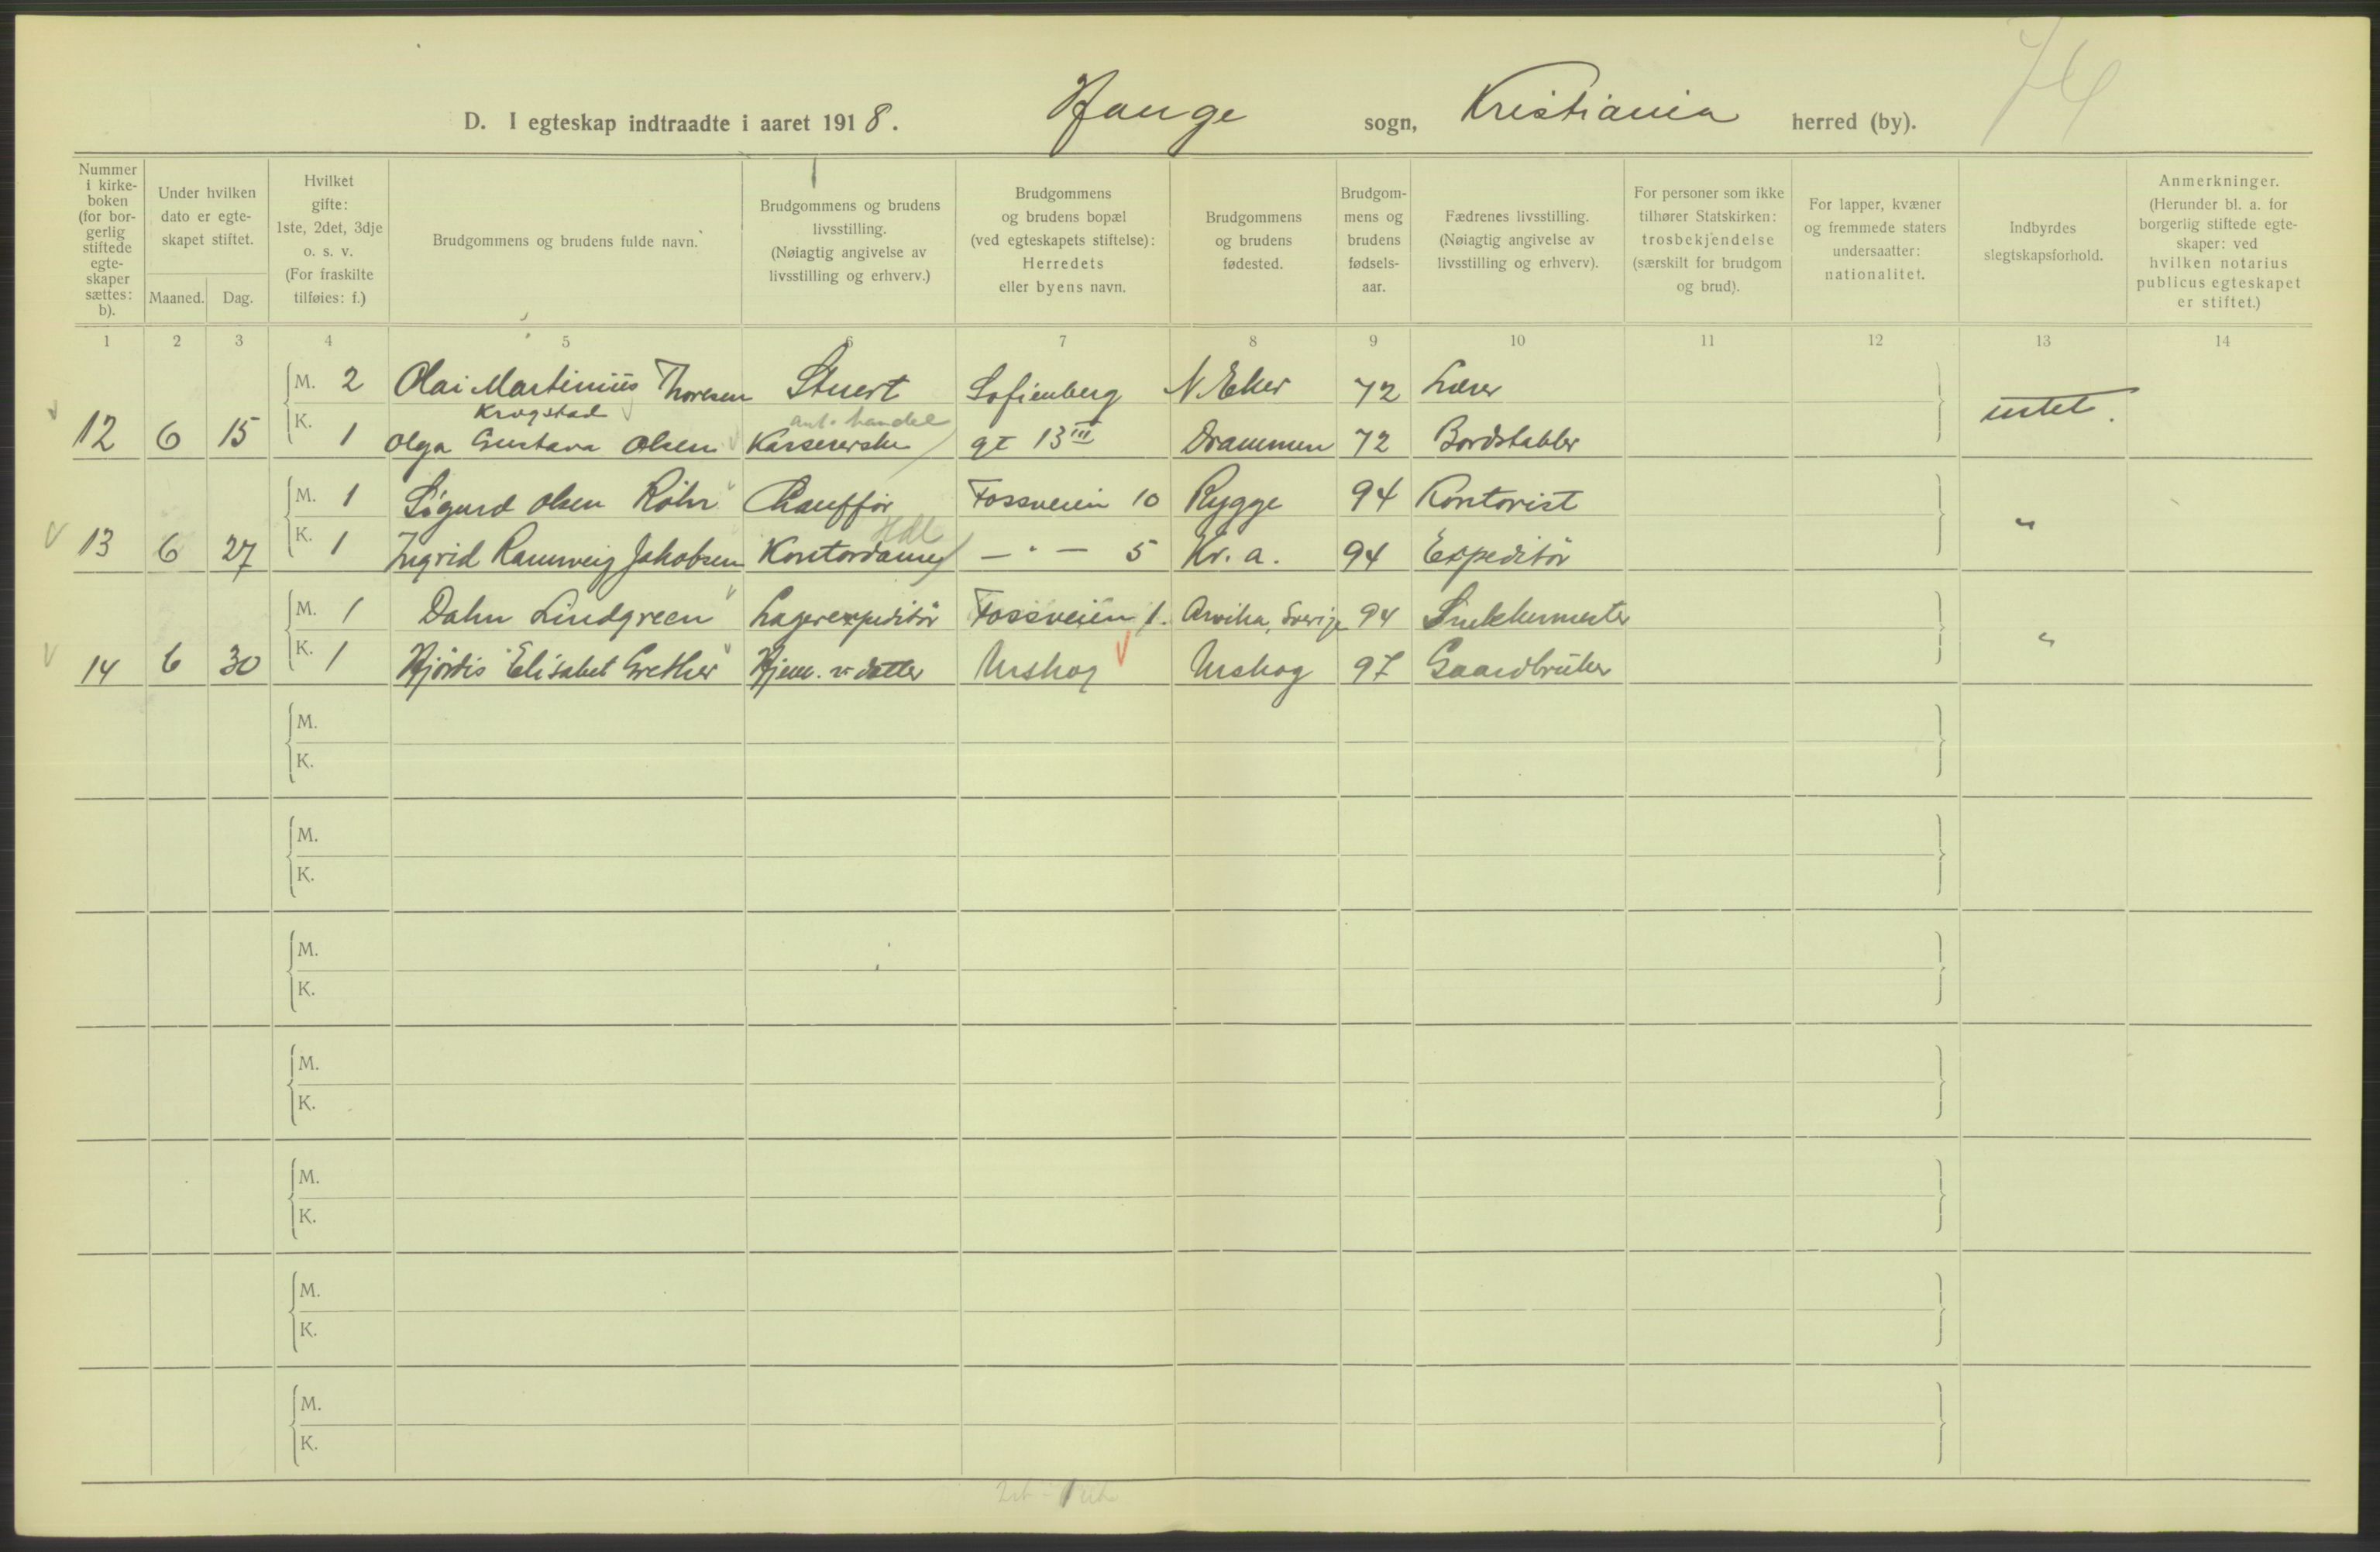 74
D. I egteskap indtraadte i aaret 1918. Hauge sogn, Kristiania herred (by).
Nummer i kirkeboken (for borgerlig stiftede egteskaper sættes: b).
Under hvilken dato er egteskapet stiftet.
Maaned. Dag.
Hvilket gifte: 1ste, 2det, 3dje o. s. v. (For fraskilte tilføies: f.)
Brudgommens og brudens fulde navn.
Brudgommens og brudens livsstilling. (Nøiagtig angivelse av livsstilling og erhverv.)
Brudgommens og brudens bopæl (ved egteskapets stiftelse): Herredets eller byens navn.
Brudgommens og brudens fødested.
Brudgommens og brudens fødselsaar.
Fædrenes livsstilling. (Nøiagtig angivelse av livsstilling og erhverv).
For personer som ikke tilhører Statskirken: trosbekjendelse (særskilt for brudgom og brud).
For lapper, kvæner og fremmede staters undersaatter: nationalitet.
Indbyrdes slegtskapsforhold.
Anmerkninger. (Herunder bl. a. for borgerlig stiftede egteskaper: ved hvilken notarius publicus egteskapet er stiftet.)
1 2 3 4 5 6 7 8 9 10 11 12 13 14
M. 2 Olai Martinius Thoresen Stuert Sofienberg N. Eker 72 Lærer
Krogstad ant. handel intet.
12 6 15 K. 1 Olga Gustava Olsen Kassererske gt 13 III Drammen 72 Bordstabler
M. 1 Sigurd Olsen Röhr Chaufför Fossveien 10 Rygge 94 Kontorist
Hdl "
13 6 27 K. 1 Ingrid Ramveig Jakobsen Kontordame — " — 5 Kr. a. 94 Expeditör
M. 1 Dahn Lindgreen Lagerexpeditör Fossveien 1. Arvika, Sverige 94 Snekkermester
14 6 30 K. 1 Hjördis Elisabet Grether Hjem. v. datter Urskog Urskog 97 Gaardbruker "
M.
K.
M.
K.
M.
K.
M.
K.
M.
K.
M.
K.
M.
K.